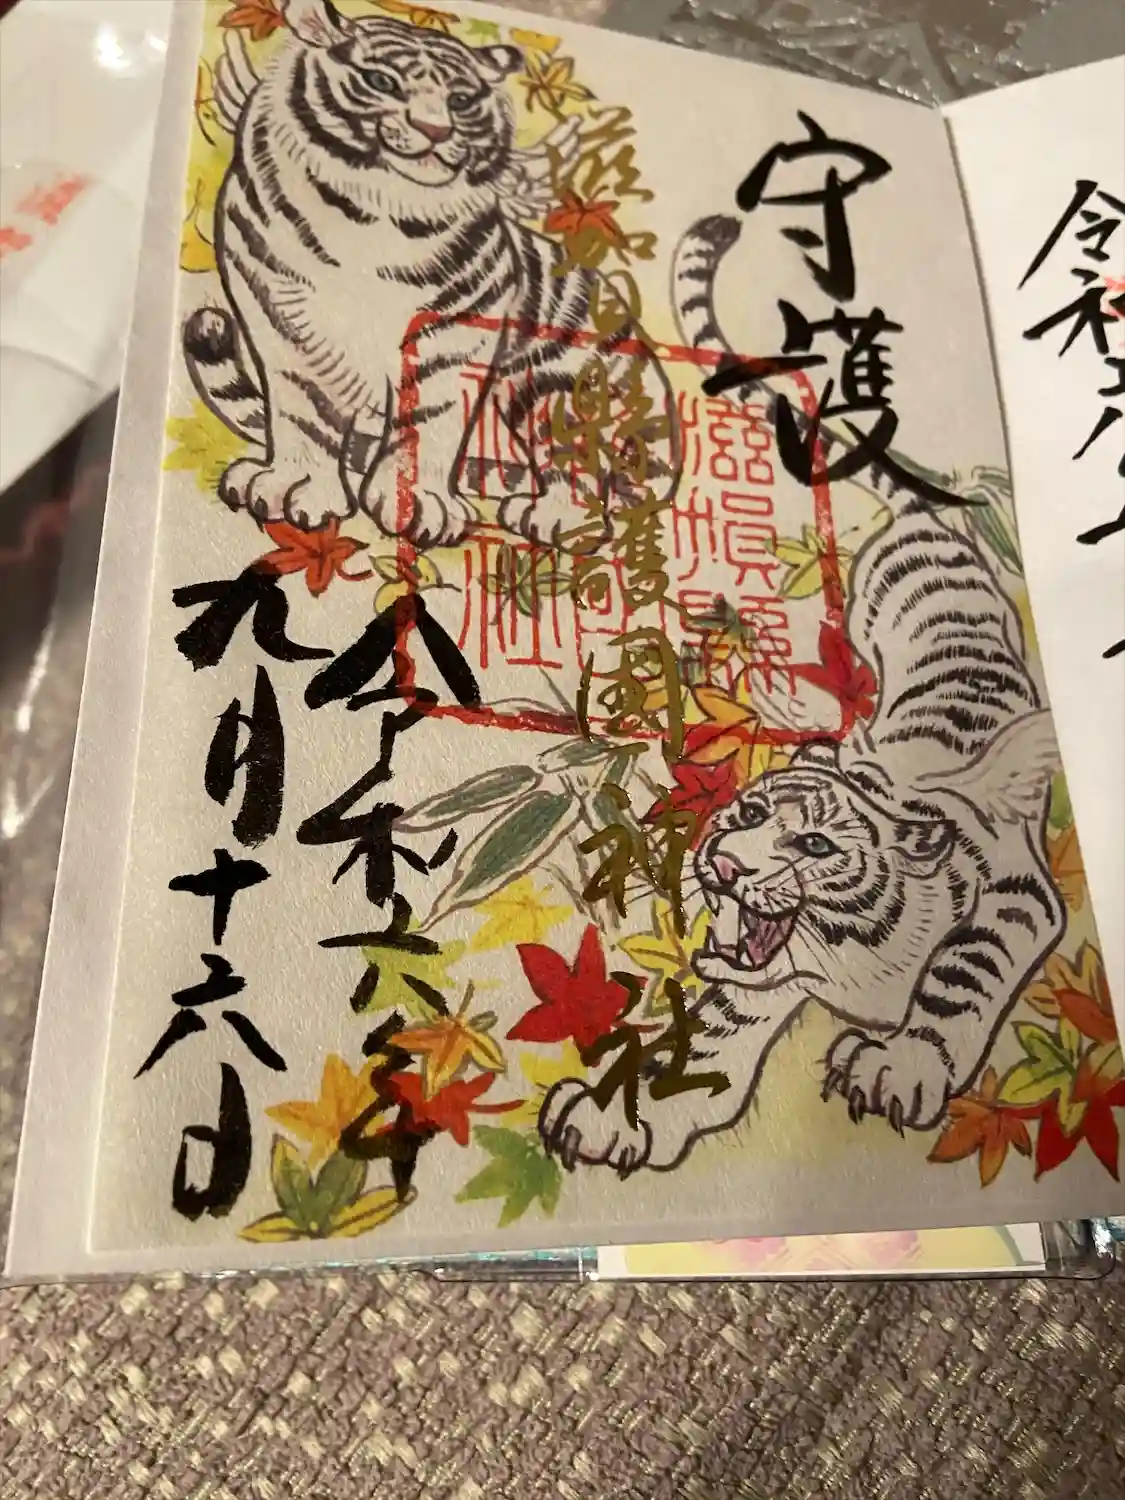 令和六年
守護
滋賀縣護国神社
滋賀縣
護國
神社
令和六年
九月十六日